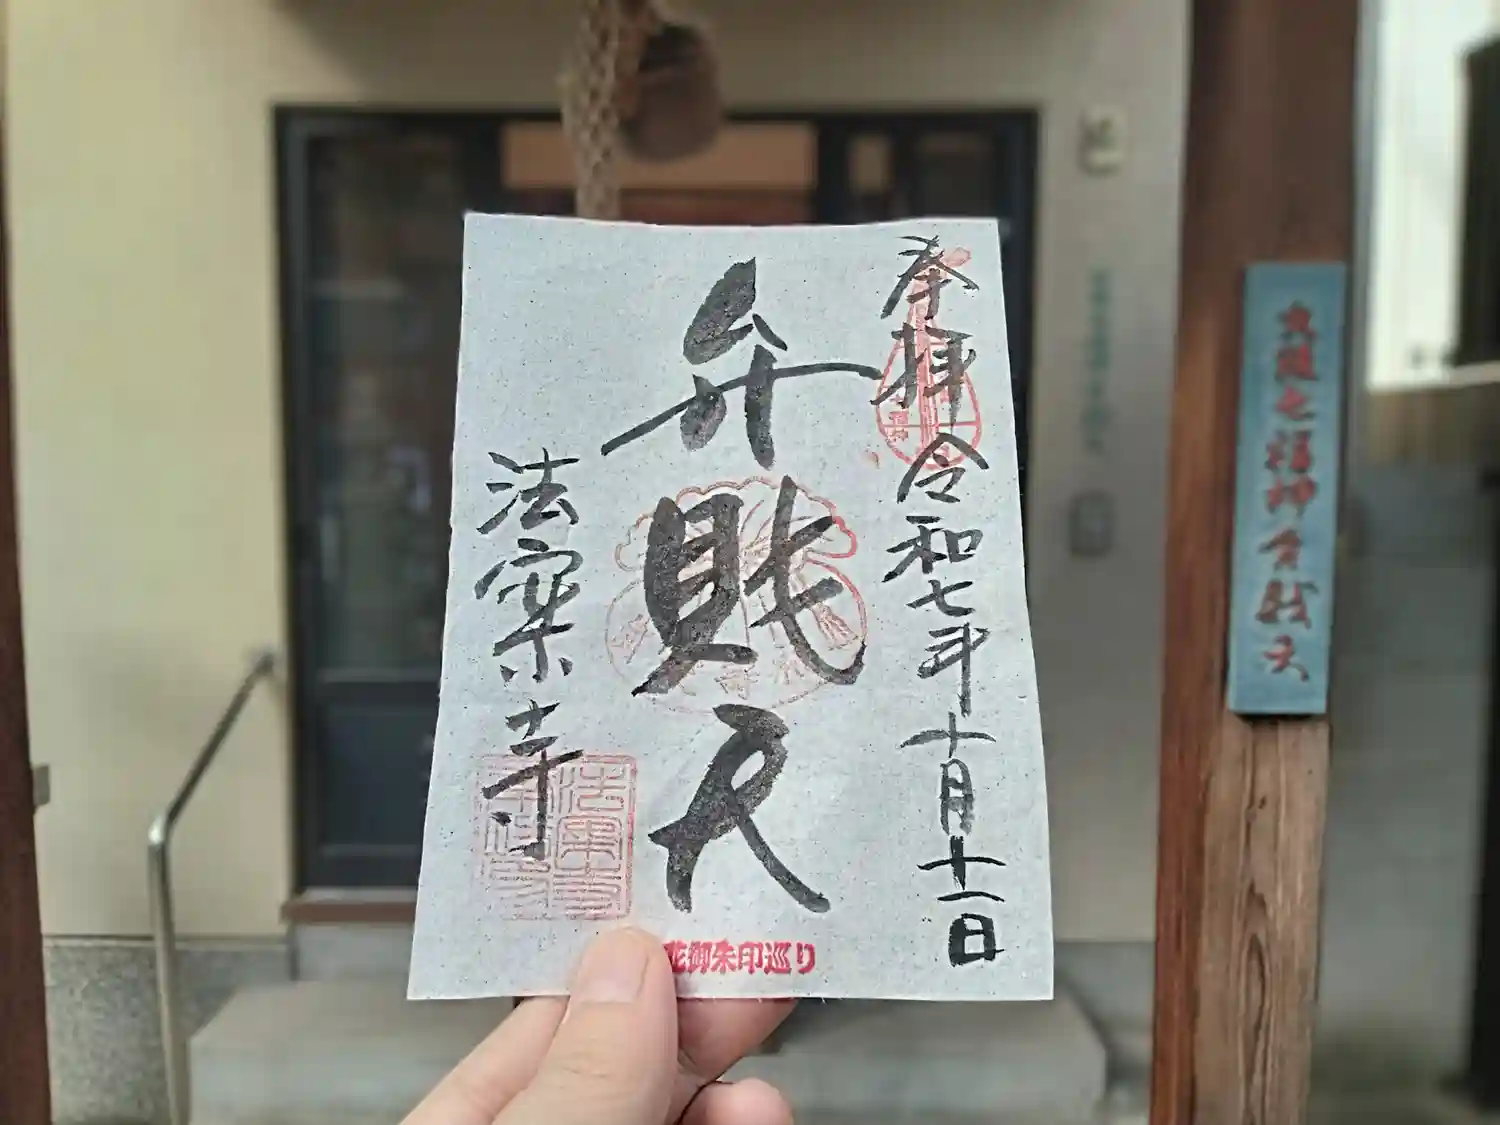 奉拝
令和七年十月十一日
弁財天
法楽寺
花御朱印巡り
大阪七福神弁財天